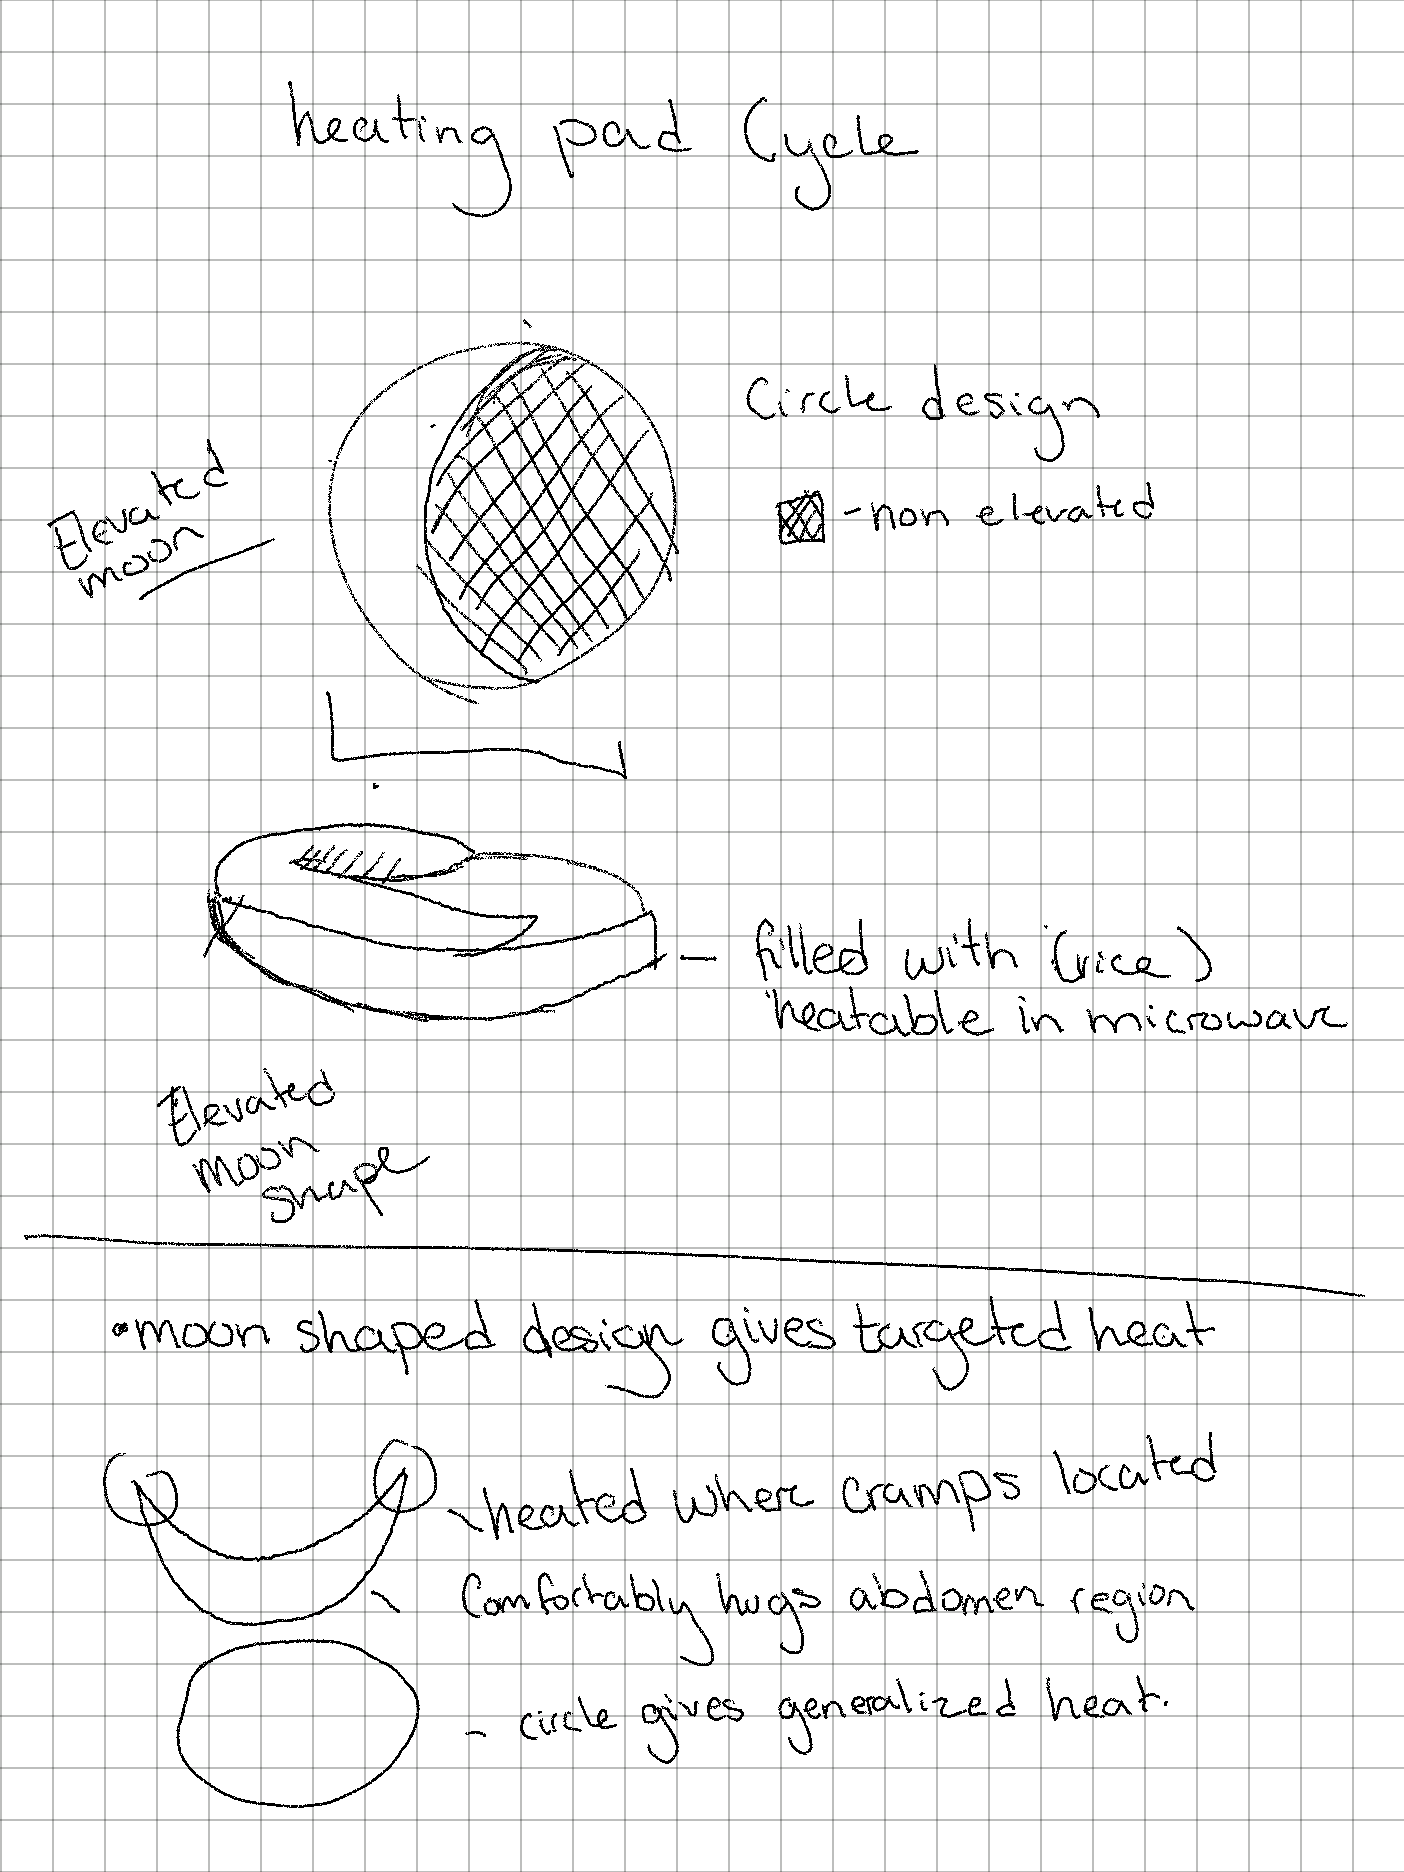 heating pad Cycle
Circle design
Elevated
moon
-non elevated
- filled with (rice)
heatable in microwave
Elevated
moon
shape
•moon shaped design gives targeted heat
-heated where cramps located
- Comfortably hugs abdomen region
- circle gives generalized heat.